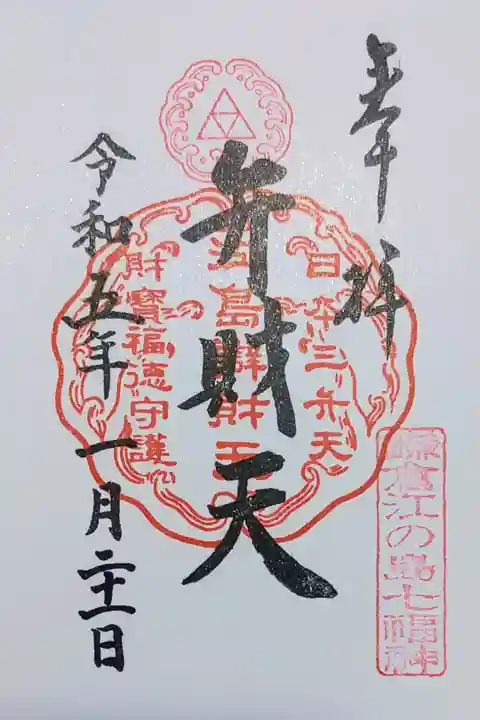 奉拝
日本三弁天
弁財天
江島辨財天
財寶福徳守護
令和五年一月二十一日
鎌倉江の島七福神